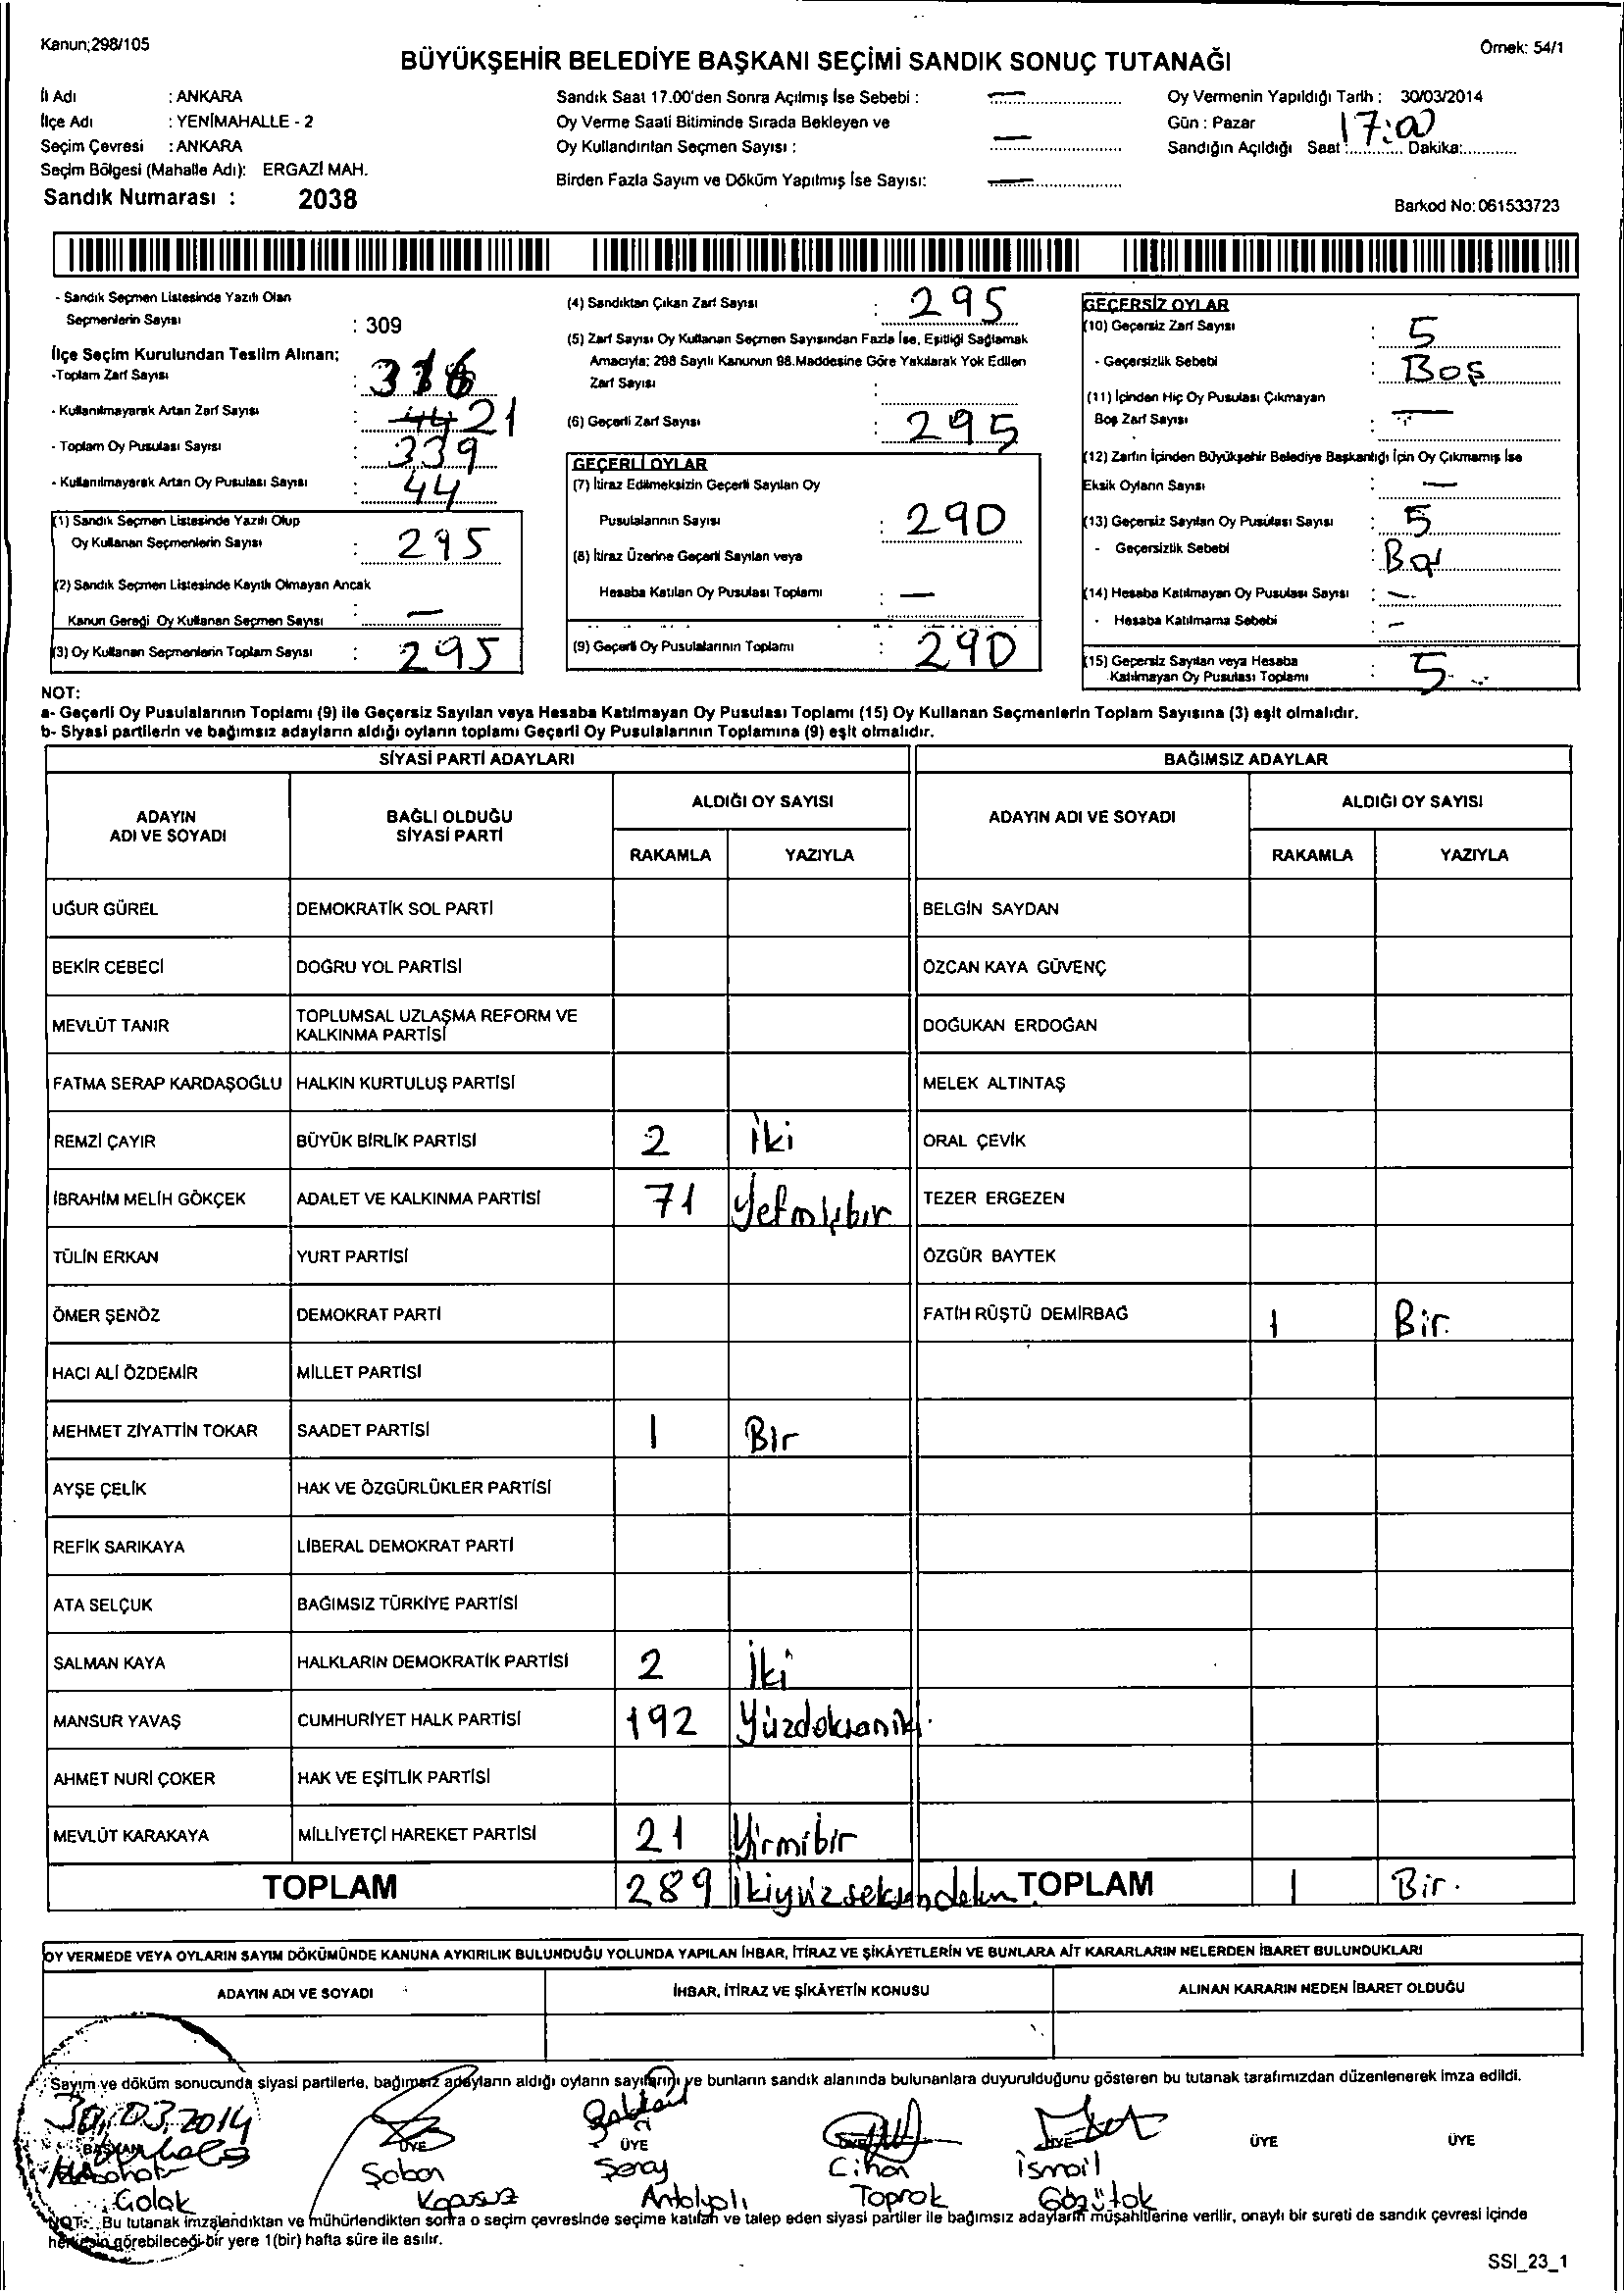 Kanun;298/105
Örnek: 54/1
BÜYÜKŞEHİR BELEDİYE BAŞKANI SEÇİMİ SANDIK SONUÇ TUTANAĞI
İl Adı : ANKARA
İlçe Adı : YENİMAHALLE - 2
Seçim Çevresi : ANKARA
Seçim Bölgesi (Mahalle Adı): ERGAZİ MAH.
Sandık Numarası : 2038
Sandık Saat 17.00'den Sonra Açılmış İse Sebebi : —
Oy Verme Saati Bitiminde Sırada Bekleyen ve
Oy Kullandırılan Seçmen Sayısı : —
Birden Fazla Sayım ve Döküm Yapılmış İse Sayısı: —
Oy Vermenin Yapıldığı Tarih : 30/03/2014
Gün : Pazar
Sandığın Açıldığı Saat :............ Dakika:............ 17:00
Barkod No: 061533723
- Sandık Seçmen Listesinde Yazılı Olan
Seçmenlerin Sayısı : 309
İlçe Seçim Kurulundan Teslim Alınan;
-Toplam Zarf Sayısı : 316
- Kullanılmayarak Artan Zarf Sayısı : 44 21
- Toplam Oy Pusulası Sayısı : 339
- Kullanılmayarak Artan Oy Pusulası Sayısı : 44
(1) Sandık Seçmen Listesinde Yazılı Olup
Oy Kullanan Seçmenlerin Sayısı : 295
(2) Sandık Seçmen Listesinde Kayıtlı Olmayan Ancak
Kanun Gereği Oy Kullanan Seçmen Sayısı : —
(3) Oy Kullanan Seçmenlerin Toplam Sayısı : 295
(4) Sandıktan Çıkan Zarf Sayısı : 295
(5) Zarf Sayısı Oy Kullanan Seçmen Sayısından Fazla İse, Eşitliği Sağlamak
Amacıyla; 298 Sayılı Kanunun 98.Maddesine Göre Yakılarak Yok Edilen
Zarf Sayısı :
(6) Geçerli Zarf Sayısı : 295
GEÇERLİ OYLAR
(7) İtiraz Edilmeksizin Geçerli Sayılan Oy
Pusulalarının Sayısı : 290
(8) İtiraz Üzerine Geçerli Sayılan veya
Hesaba Katılan Oy Pusulası Toplamı : —
(9) Geçerli Oy Pusulalarının Toplamı : 290
GEÇERSİZ OYLAR
(10) Geçersiz Zarf Sayısı : 5
- Geçersizlik Sebebi : Boş
(11) İçinden Hiç Oy Pusulası Çıkmayan
Boş Zarf Sayısı : —
(12) Zarfın İçinden Büyükşehir Belediye Başkanlığı İçin Oy Çıkmamış İse
Eksik Oyların Sayısı : —
(13) Geçersiz Sayılan Oy Pusulası Sayısı : 5
- Geçersizlik Sebebi : Boş
(14) Hesaba Katılmayan Oy Pusulası Sayısı : —
- Hesaba Katılmama Sebebi : —
(15) Geçersiz Sayılan veya Hesaba
Katılmayan Oy Pusulası Toplamı : 5
NOT:
a- Geçerli Oy Pusulalarının Toplamı (9) ile Geçersiz Sayılan veya Hesaba Katılmayan Oy Pusulası Toplamı (15) Oy Kullanan Seçmenlerin Toplam Sayısına (3) eşit olmalıdır.
b- Siyasi partilerin ve bağımsız adayların aldığı oyların toplamı Geçerli Oy Pusulalarının Toplamına (9) eşit olmalıdır.
SİYASİ PARTİ ADAYLARI BAĞIMSIZ ADAYLAR
ADAYIN
ADI VE SOYADI
BAĞLI OLDUĞU
SİYASİ PARTİ
ALDIĞI OY SAYISI
RAKAMLA YAZIYLA
ADAYIN ADI VE SOYADI
ALDIĞI OY SAYISI
RAKAMLA YAZIYLA
UĞUR GÜREL DEMOKRATİK SOL PARTİ BELGİN SAYDAN
BEKİR CEBECİ DOĞRU YOL PARTİSİ ÖZCAN KAYA GÜVENÇ
MEVLÜT TANIR TOPLUMSAL UZLAŞMA REFORM VE
KALKINMA PARTİSİ DOĞUKAN ERDOĞAN
FATMA SERAP KARDAŞOĞLU HALKIN KURTULUŞ PARTİSİ MELEK ALTINTAŞ
REMZİ ÇAYIR BÜYÜK BİRLİK PARTİSİ 2 İki ORAL ÇEVİK
İBRAHİM MELİH GÖKÇEK ADALET VE KALKINMA PARTİSİ 71 Yetmişbir TEZER ERGEZEN
TÜLİN ERKAN YURT PARTİSİ ÖZGÜR BAYTEK
ÖMER ŞENÖZ DEMOKRAT PARTİ FATİH RÜŞTÜ DEMİRBAĞ 1 Bir.
HACI ALİ ÖZDEMİR MİLLET PARTİSİ
MEHMET ZİYATTİN TOKAR SAADET PARTİSİ 1 Bir
AYŞE ÇELİK HAK VE ÖZGÜRLÜKLER PARTİSİ
REFİK SARIKAYA LİBERAL DEMOKRAT PARTİ
ATA SELÇUK BAĞIMSIZ TÜRKİYE PARTİSİ
SALMAN KAYA HALKLARIN DEMOKRATİK PARTİSİ 2 İki
MANSUR YAVAŞ CUMHURİYET HALK PARTİSİ 192 Yüzdoksaniki.
AHMET NURİ ÇOKER HAK VE EŞİTLİK PARTİSİ
MEVLÜT KARAKAYA MİLLİYETÇİ HAREKET PARTİSİ 21 Yirmibir
TOPLAM 289 İkiyüzseksendokuz TOPLAM 1 Bir.
OY VERMEDE VEYA OYLARIN SAYIM DÖKÜMÜNDE KANUNA AYKIRILIK BULUNDUĞU YOLUNDA YAPILAN İHBAR, İTİRAZ VE ŞİKÂYETLERİN VE BUNLARA AİT KARARLARIN NELERDEN İBARET BULUNDUKLARI
ADAYIN ADI VE SOYADI İHBAR, İTİRAZ VE ŞİKÂYETİN KONUSU ALINAN KARARIN NEDEN İBARET OLDUĞU
Sayım ve döküm sonucunda siyasi partilerle, bağımsız adayların aldığı oyların sayılarını ve bunların sandık alanında bulunanlara duyurulduğunu gösteren bu tutanak tarafımızdan düzenlenerek imza edildi.
30.03.2014
BAŞKAN ÜYE ÜYE ÜYE ÜYE ÜYE ÜYE
Şaban Seray Cihan İsmail
Çolak Kapusuz Antalyalı Toprak Gözütok
NOT: Bu tutanak imzalandıktan ve mühürlendikten sonra o seçim çevresinde seçime katılan ve talep eden siyasi partiler ile bağımsız adayların müşahitlerine verilir, onaylı bir sureti de sandık çevresi içinde
herkesin görebileceği bir yere 1(bir) hafta süre ile asılır.
SSI_23_1